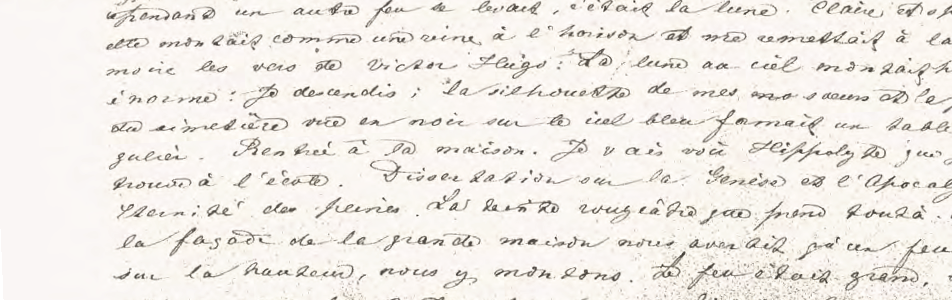 cependant un autre feu se levait, c'était la lune. Claire et
elle montait comme une reine à l'horison et me remettait à la
moire les vers de Victor Hugo : La lune au ciel montait
énorme : Je descendis ; la silhouette de mes sœurs et le
du cimetière vue en noir sur le ciel bleu formait un
gulier. Rentré à la maison. Je vais voir Hippolyte que
trouve à l'école. Dissertation sur la Genèse et l'Apocal
l'éternité des peines. La teinte rougeâtre que prend tout à
la façade de la grande maison nous avertit qu'un feu
sur la hauteur, nous y montons. Le feu était grand,